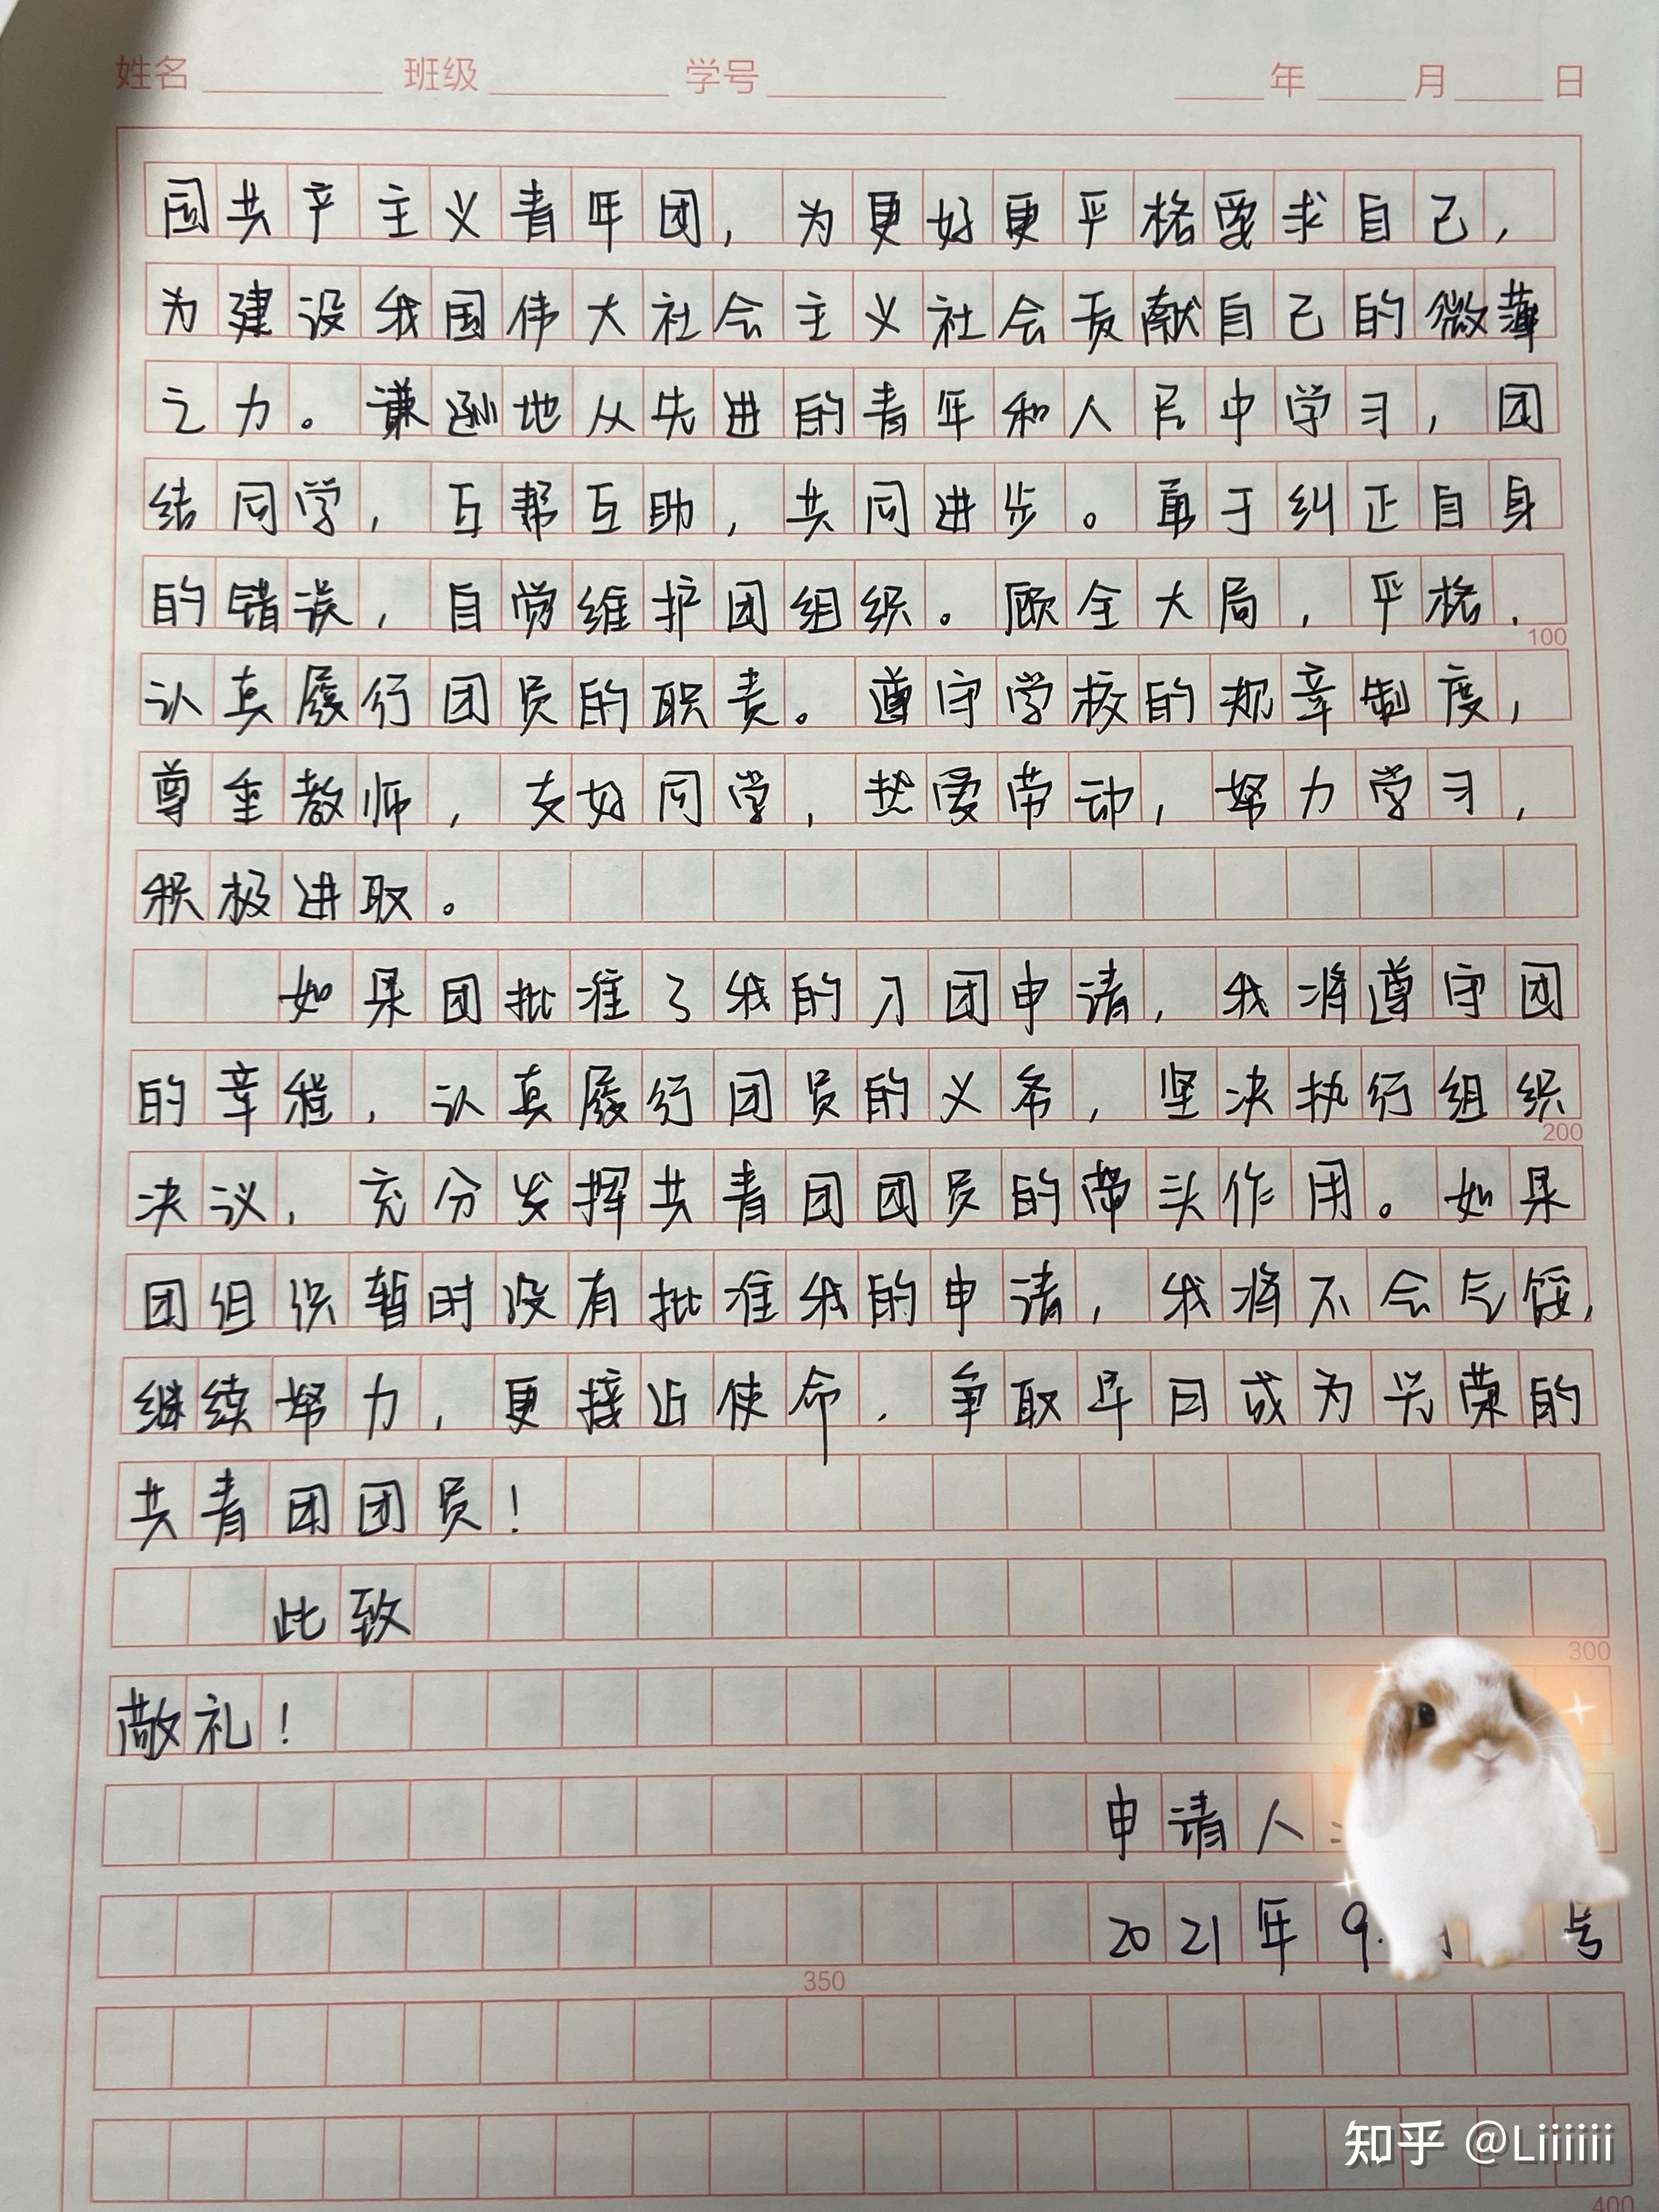 姓名 班级 学号 年 月 日
国共产主义青年团，为更好更严格要求自己，
为建设我国伟大社会主义社会贡献自己的微薄
之力。谦逊地从先进的青年和人民中学习，团
结同学，互帮互助，共同进步。勇于纠正自身
的错误，自觉维护团组织。顾全大局，严格、
100
认真履行团员的职责。遵守学校的规章制度，
尊重教师，友好同学，热爱劳动，努力学习，
积极进取。
如果团批准了我的入团申请，我将遵守团
的章程，认真履行团员的义务，坚决执行组织
200
决议，充分发挥共青团团员的带头作用。如果
团组织暂时没有批准我的申请，我将不会气馁，
继续努力，更接近使命，争取早日成为光荣的
共青团团员！
此致
300
敬礼！
申请人
2021年9月 号
350
知乎 @Liiiiiii
400